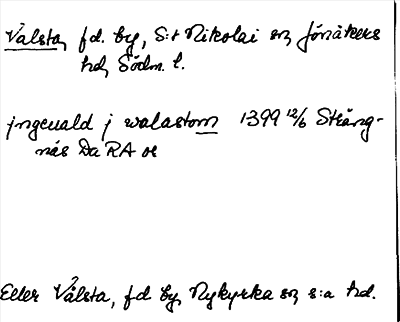 Valsta, f.d. by, S:t Nikolai sn, Jönåkers
hd, Södm. l.
jngeuald j walastom 1399 12/6 Sträng-
näs Da RA or
Eller Vålsta, f.d. by, Nykyrka sn, s:a hd.